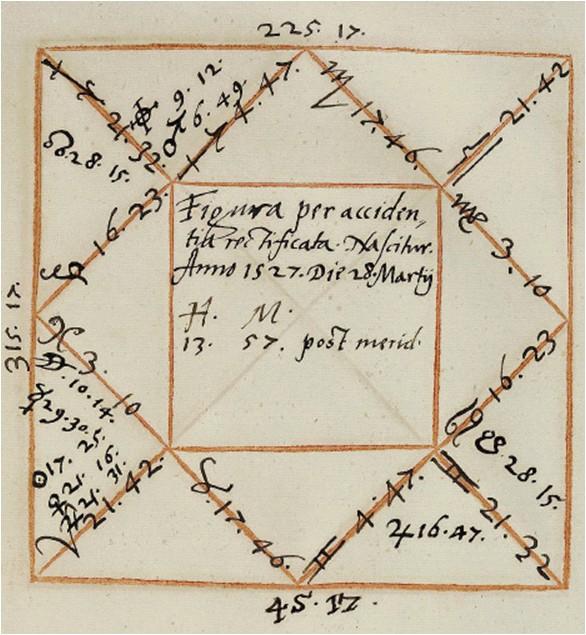 225. 17.
♐ 21. 32.
⊕ 9. 12.
♂ 6. 49.
♐ 4. 47.
♏ 17. 46.
♎ 21. 42
☊. 28. 15.
♑ 16. 23.
Figura per acciden,,
tia rectificata. Nascitur.
Anno 1527. Die 28. Martij
H. M.
13. 57. post merid.
♍ 3. 10
315. 17
♓ 3. 10
10. 14.
29. 30.
☉ 17. 25.
21. 16.
21. 31.
21. 42.
♉ 17. 46.
♊ 4. 47.
♃ 16. 47.
♊ 21. 32
16. 23
☋. 28. 15.
45. 17.